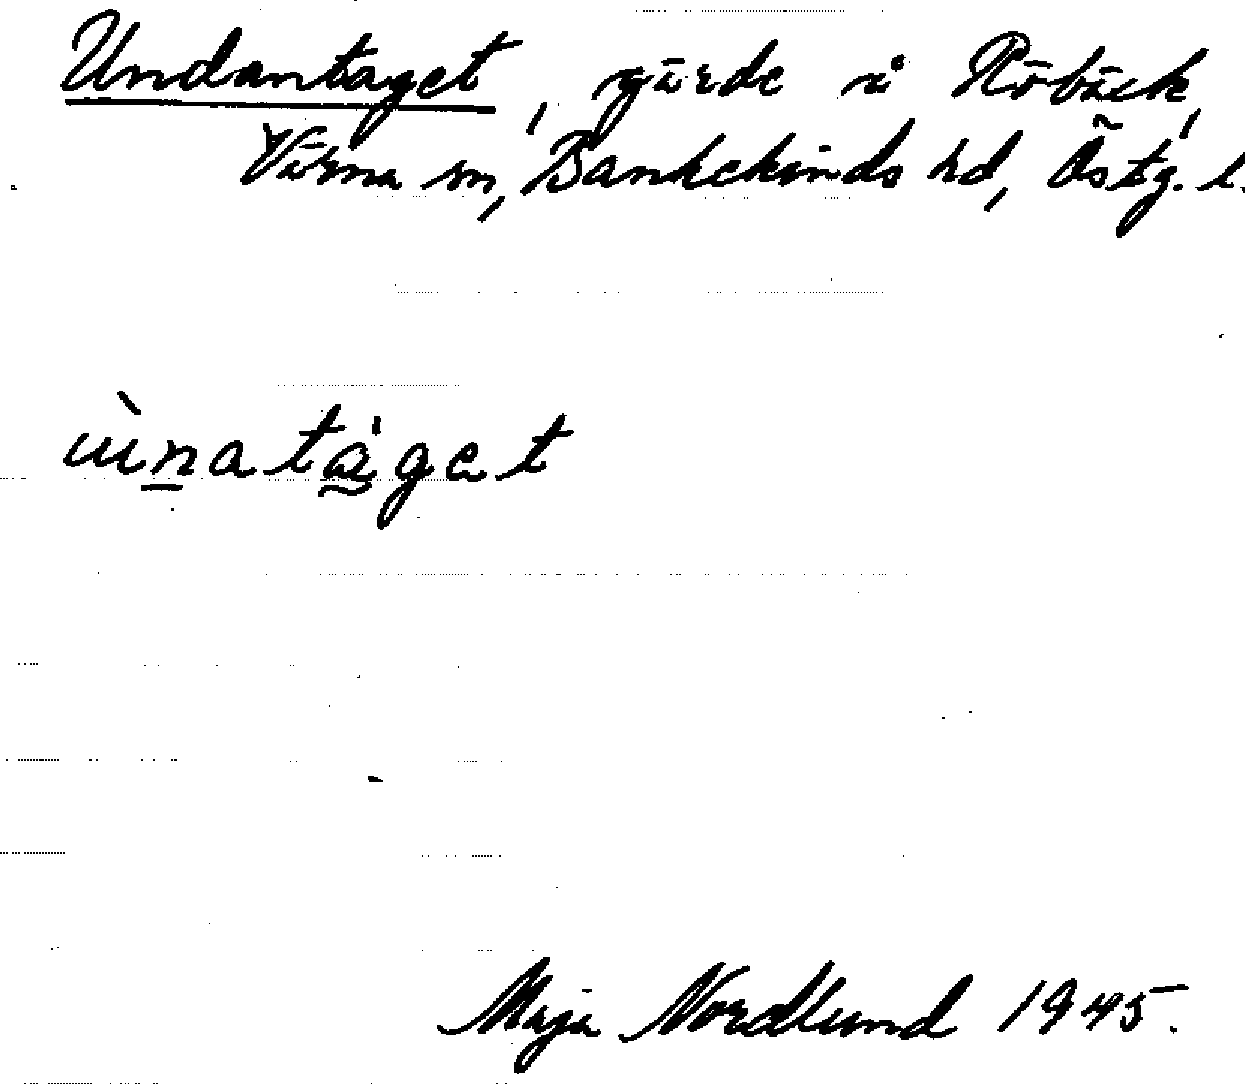 Undantaget, gärde i Röbäck,
Värna sn, Bankekinds hd, Östg. l.
ùnatáget
Maja Nordlund 1945.